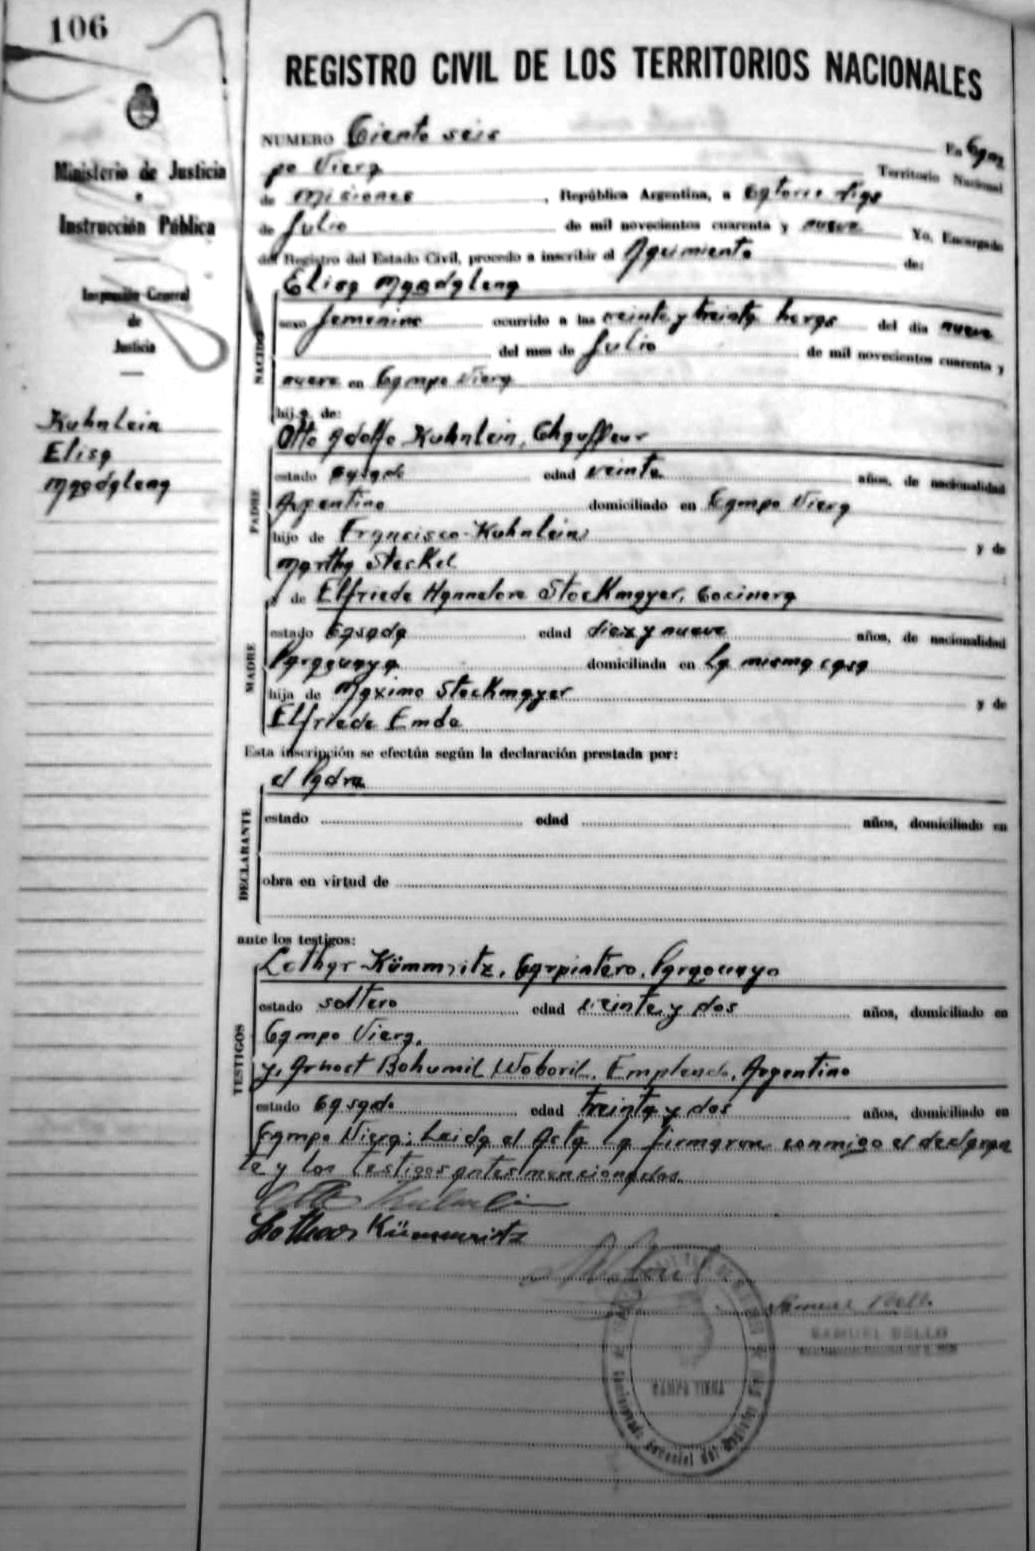 106
REGISTRO CIVIL DE LOS TERRITORIOS NACIONALES
Ministerio de Justicia
e
Instrucción Pública
Inspección General
de
Justicia
Kuhnlein
Elisa
Magdalena
NUMERO Ciento seis En Cam
po Viera Territorio Nacional
de Misiones, República Argentina, a catorce dias
de Julio de mil novecientos cuarenta y nueve Yo, Encargado
del Registro del Estado Civil, procedo a inscribir el Nacimiento de:
NACIDO
Elisa Magdalena
sexo femenino ocurrido a las veinte y treinta horas del día nueve
del mes de Julio de mil novecientos cuarenta y
nueve en Campo Viera
hija de:
PADRE
Otto Adolfo Kuhnlein, Chauffeur
estado casado edad veinte años, de nacionalidad
Argentino domiciliado en Campo Viera
hijo de Francisco Kuhnlein y de
Martha Steckel
MADRE
y de Elfriede Hannelore Stockmayer, cocinera
estado Casada edad diez y nueve años, de nacionalidad
Paraguaya domiciliada en la misma casa
hija de Maximo Stockmayer y de
Elfriede Emde
Esta inscripción se efectúa según la declaración prestada por:
DECLARANTE
el Padre
estado edad años, domiciliado en
obra en virtud de
ante los testigos:
TESTIGOS
Lothar Kümmritz, Carpintero, Paraguayo
estado soltero edad veinte y dos años, domiciliado en
Campo Viera,
y, Arnost Bohumil Woboril, Empleado, Argentino
estado Casado edad treinta y dos años, domiciliado en
Campo Viera; Leida el Acta la firmaron conmigo el declaran
te y los testigos antes mencionados.
Otto Kuhnlein
Lothar Kümmritz
Samuel Bello
SAMUEL BELLO